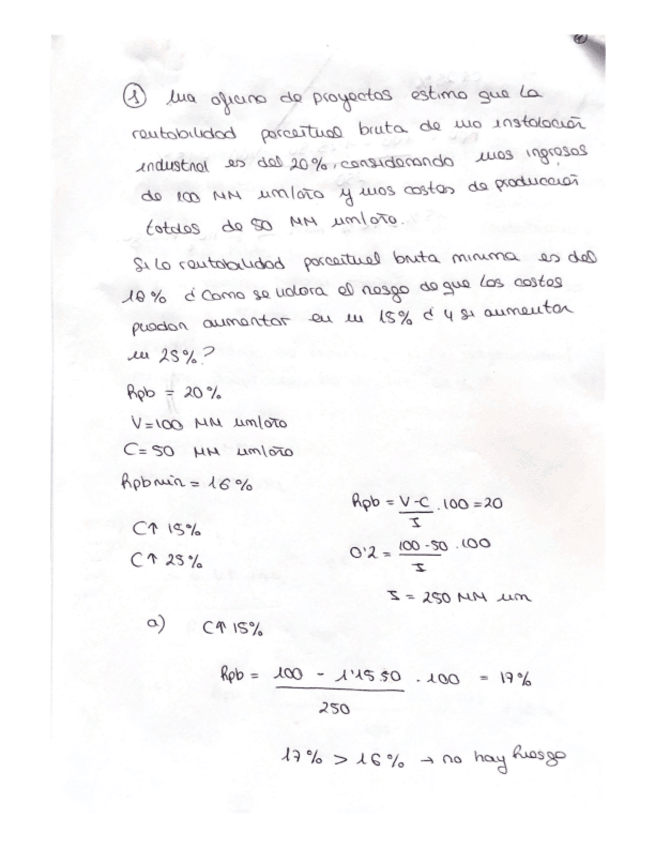 ① Una oficina de proyectos estima que la
rentabilidad porcentual bruta de una instalación
industrial es del 20%, considerando unos ingresos
de 100 MM um/año y unos costos de producción
totales de 50 MM um/año.
Si la rentabilidad porcentual bruta minima es del
16% ¿ Como se valora el riesgo de que los costos
puedan aumentar en un 15% ¿ y si aumentan
un 25%?
Rpb = 20%
V=100 MM um/año
C=50 MM um/año
Rpbmin = 16%
C↑ 15%
C↑ 25%
Rpb = V-C / I . 100 = 20
0'2 = 100-50 / I . 100
I = 250 MM um
a) C↑ 15%
Rpb = 100 - 1'15.50 / 250 . 100 = 17%
17% > 16% → no hay Riesgo